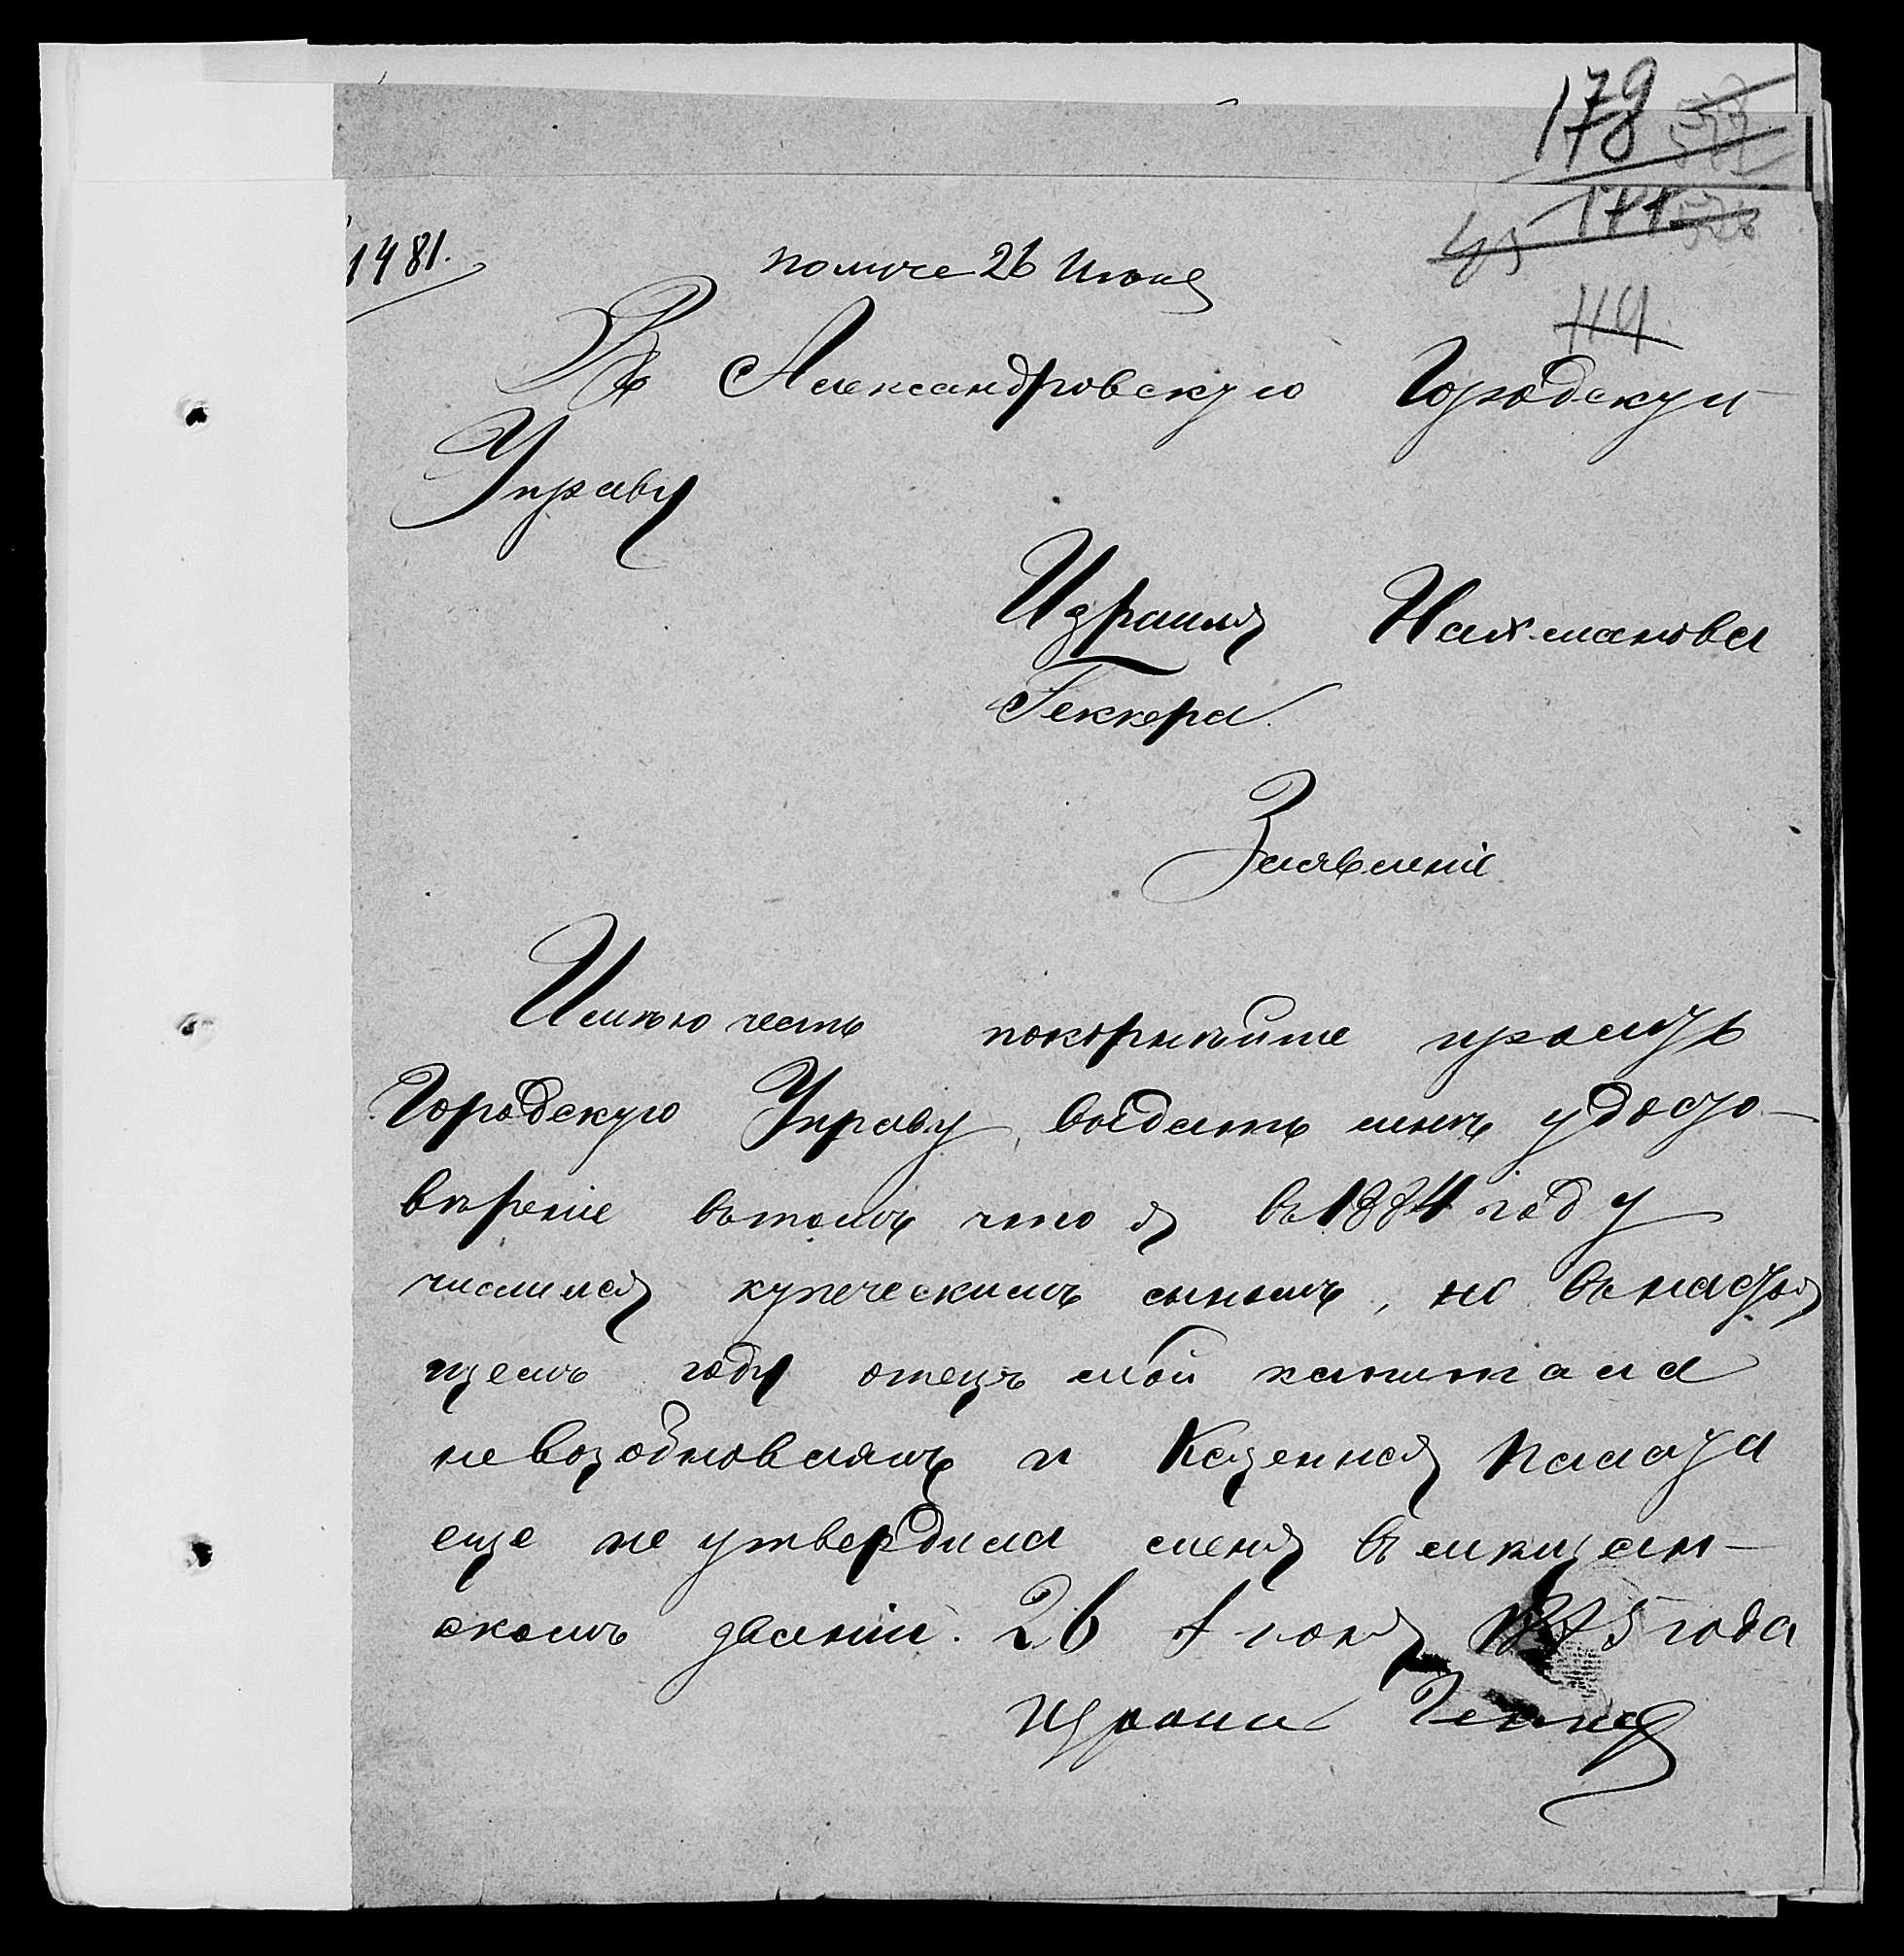 179
178
177
119
1481.
получе 26 Июня
Въ Александровскую Городскую
Управу
Израиля Нахманова
Геккера.
Заявленіе
Имѣю честь покорнѣйше просить
Городскую Управу, выдать мнѣ удосто-
вѣреніе въ томъ что я въ 1884 году
числился купеческимъ сыномъ, но въ настоя
щемъ году отецъ мой капитала
не возобновлялъ и Казенная палата
еще не утвердила меня въ мѣщан-
скомъ званіи. 26 Іюня 1885 года
Израиль Геккер